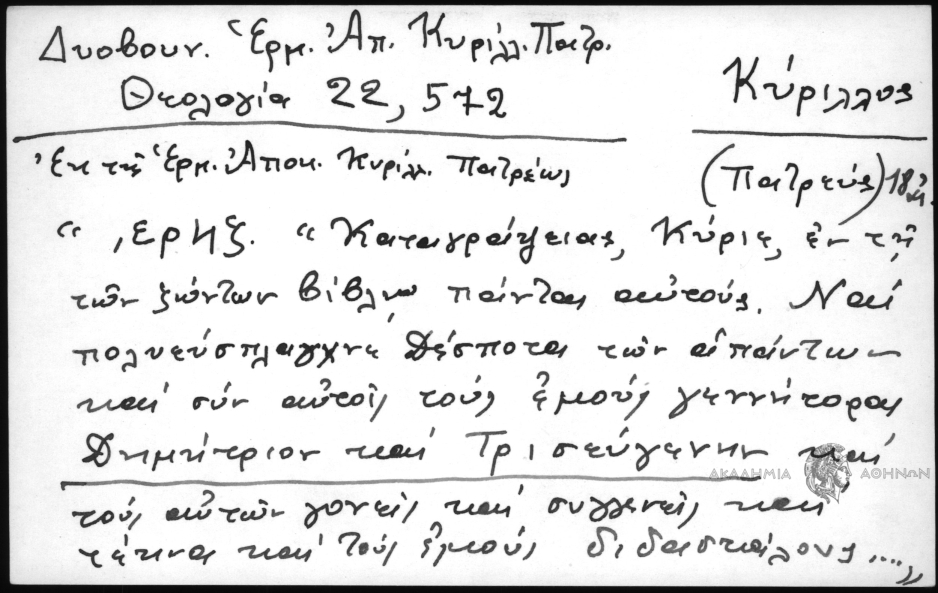 Δυοβουν. Ἑρμ. Ἀπ. Κυρίλλ. Πατρ.
Θεολογία 22, 572
Κύριλλος
(Πατρεύς) 18
Ἐκ τῆς Ἑρμ. Ἀποκ. Κυρίλλ. Πατρέως
" "Καταγράψειας, Κύριε, ἐν τῇ
τῶν ζώντων βίβλῳ πάντας αὐτούς. Ναί
πολυεύσπλαγχνε Δέσποτα τῶν ἁπάντων
καί σύν αὐτοῖς τούς ἐμούς γεννήτορας
Δημήτριον καί Τρισεύγενην καί
τούς αὐτῶν γονεῖς καί συγγενεῖς καί
τέκνα καί τούς ἐμούς διδασκάλους....."
ΑΚΑΔΗΜΙΑ ΑΘΗΝΩΝ